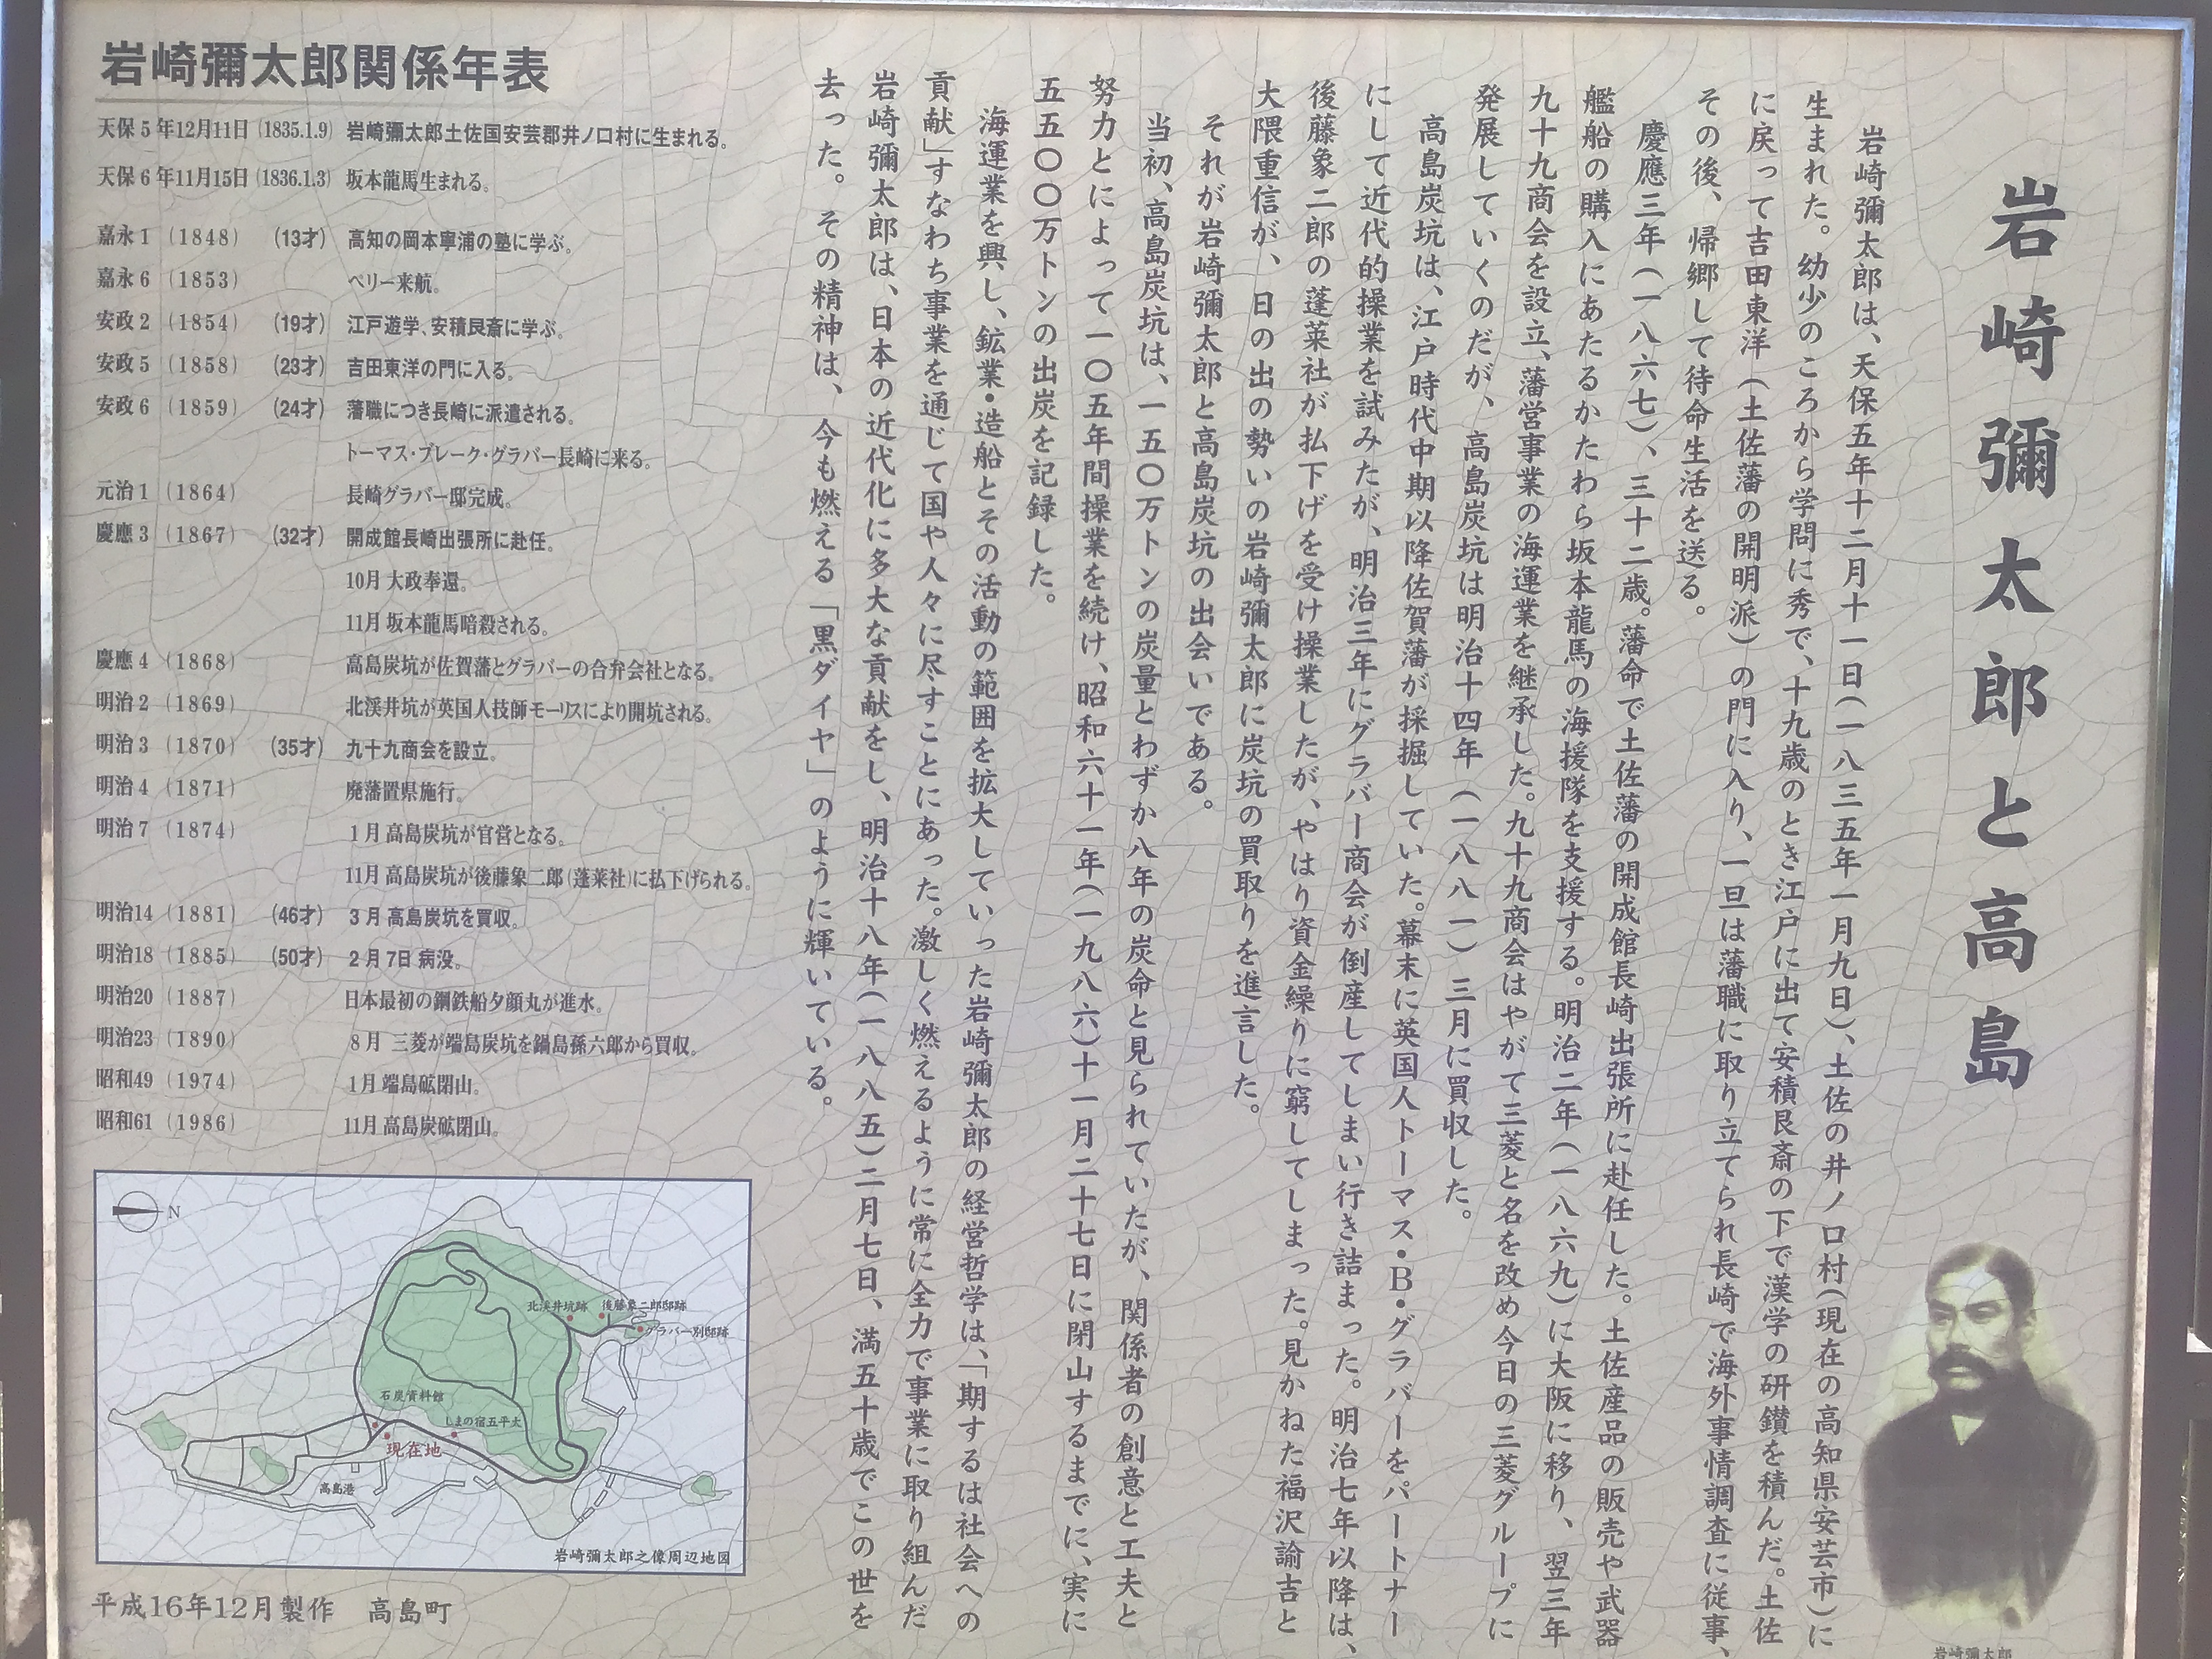 岩崎彌太郎と高島
岩崎彌太郎は、天保五年十二月十一日(一八三五年一月九日)、土佐の井ノ口村(現在の高知県安芸市)に
生まれた。幼少のころから学問に秀で、十九歳のとき江戸に出て安積艮斎の下で漢学の研鑽を積んだ。土佐
に戻って吉田東洋(土佐藩の開明派)の門に入り、一旦は藩職に取り立てられ長崎で海外事情調査に従事、
その後、帰郷して待命生活を送る。
慶應三年(一八六七)、三十二歳。藩命で土佐藩の開成館長崎出張所に赴任した。土佐産品の販売や武器
艦船の購入にあたるかたわら坂本龍馬の海援隊を支援する。明治二年(一八六九)に大阪に移り、翌三年
九十九商会を設立、藩営事業の海運業を継承した。九十九商会はやがて三菱と名を改め今日の三菱グループに
発展していくのだが、高島炭坑は明治十四年(一八八一)三月に買収した。
高島炭坑は、江戸時代中期以降佐賀藩が採掘していた。幕末に英国人トーマス・B・グラバーをパートナー
にして近代的操業を試みたが、明治三年にグラバー商会が倒産してしまい行き詰まった。明治七年以降は、
後藤象二郎の蓬莱社が払下げを受け操業したが、やはり資金繰りに窮してしまった。見かねた福沢諭吉と
大隈重信が、日の出の勢いの岩崎彌太郎に炭坑の買取りを進言した。
それが岩崎彌太郎と高島炭坑の出会いである。
当初、高島炭坑は、一五〇万トンの炭量とわずか八年の炭命と見られていたが、関係者の創意と工夫と
努力とによって一〇五年間操業を続け、昭和六十一年(一九八六)十一月二十七日に閉山するまでに、実に
五五〇〇万トンの出炭を記録した。
海運業を興し、鉱業・造船とその活動の範囲を拡大していった岩崎彌太郎の経営哲学は、「期するは社会への
貢献」すなわち事業を通じて国や人々に尽すことにあった。激しく燃えるように常に全力で事業に取り組んだ
岩崎彌太郎は、日本の近代化に多大な貢献をし、明治十八年(一八八五)二月七日、満五十歳でこの世を
去った。その精神は、今も燃える「黒ダイヤ」のように輝いている。
岩崎彌太郎
岩崎彌太郎関係年表
天保5年12月11日(1835.1.9) 岩崎彌太郎土佐国安芸郡井ノ口村に生まれる。
天保6年11月15日(1836.1.3) 坂本龍馬生まれる。
嘉永1 (1848) (13才) 高知の岡本寧浦の塾に学ぶ。
嘉永6 (1853) ペリー来航。
安政2 (1854) (19才) 江戸遊学、安積艮斎に学ぶ。
安政5 (1858) (23才) 吉田東洋の門に入る。
安政6 (1859) (24才) 藩職につき長崎に派遣される。
トーマス・ブレーク・グラバー長崎に来る。
元治1 (1864) 長崎グラバー邸完成。
慶應3 (1867) (32才) 開成館長崎出張所に赴任。
10月 大政奉還。
11月 坂本龍馬暗殺される。
慶應4 (1868) 高島炭坑が佐賀藩とグラバーの合弁会社となる。
明治2 (1869) 北渓井坑が英国人技師モーリスにより開坑される。
明治3 (1870) (35才) 九十九商会を設立。
明治4 (1871) 廃藩置県施行。
明治7 (1874) 1月 高島炭坑が官営となる。
11月 高島炭坑が後藤象二郎(蓬莱社)に払下げられる。
明治14 (1881) (46才) 3月 高島炭坑を買収。
明治18 (1885) (50才) 2月7日 病没。
明治20 (1887) 日本最初の鋼鉄船夕顔丸が進水。
明治23 (1890) 8月 三菱が端島炭坑を鍋島孫六郎から買収。
昭和49 (1974) 1月 端島砿閉山。
昭和61 (1986) 11月 高島炭砿閉山。
N
北渓井坑跡
後藤象二郎邸跡
グラバー別邸跡
石炭資料館
しまの宿五平太
現在地
高島港
岩崎彌太郎之像周辺地図
平成16年12月製作 高島町